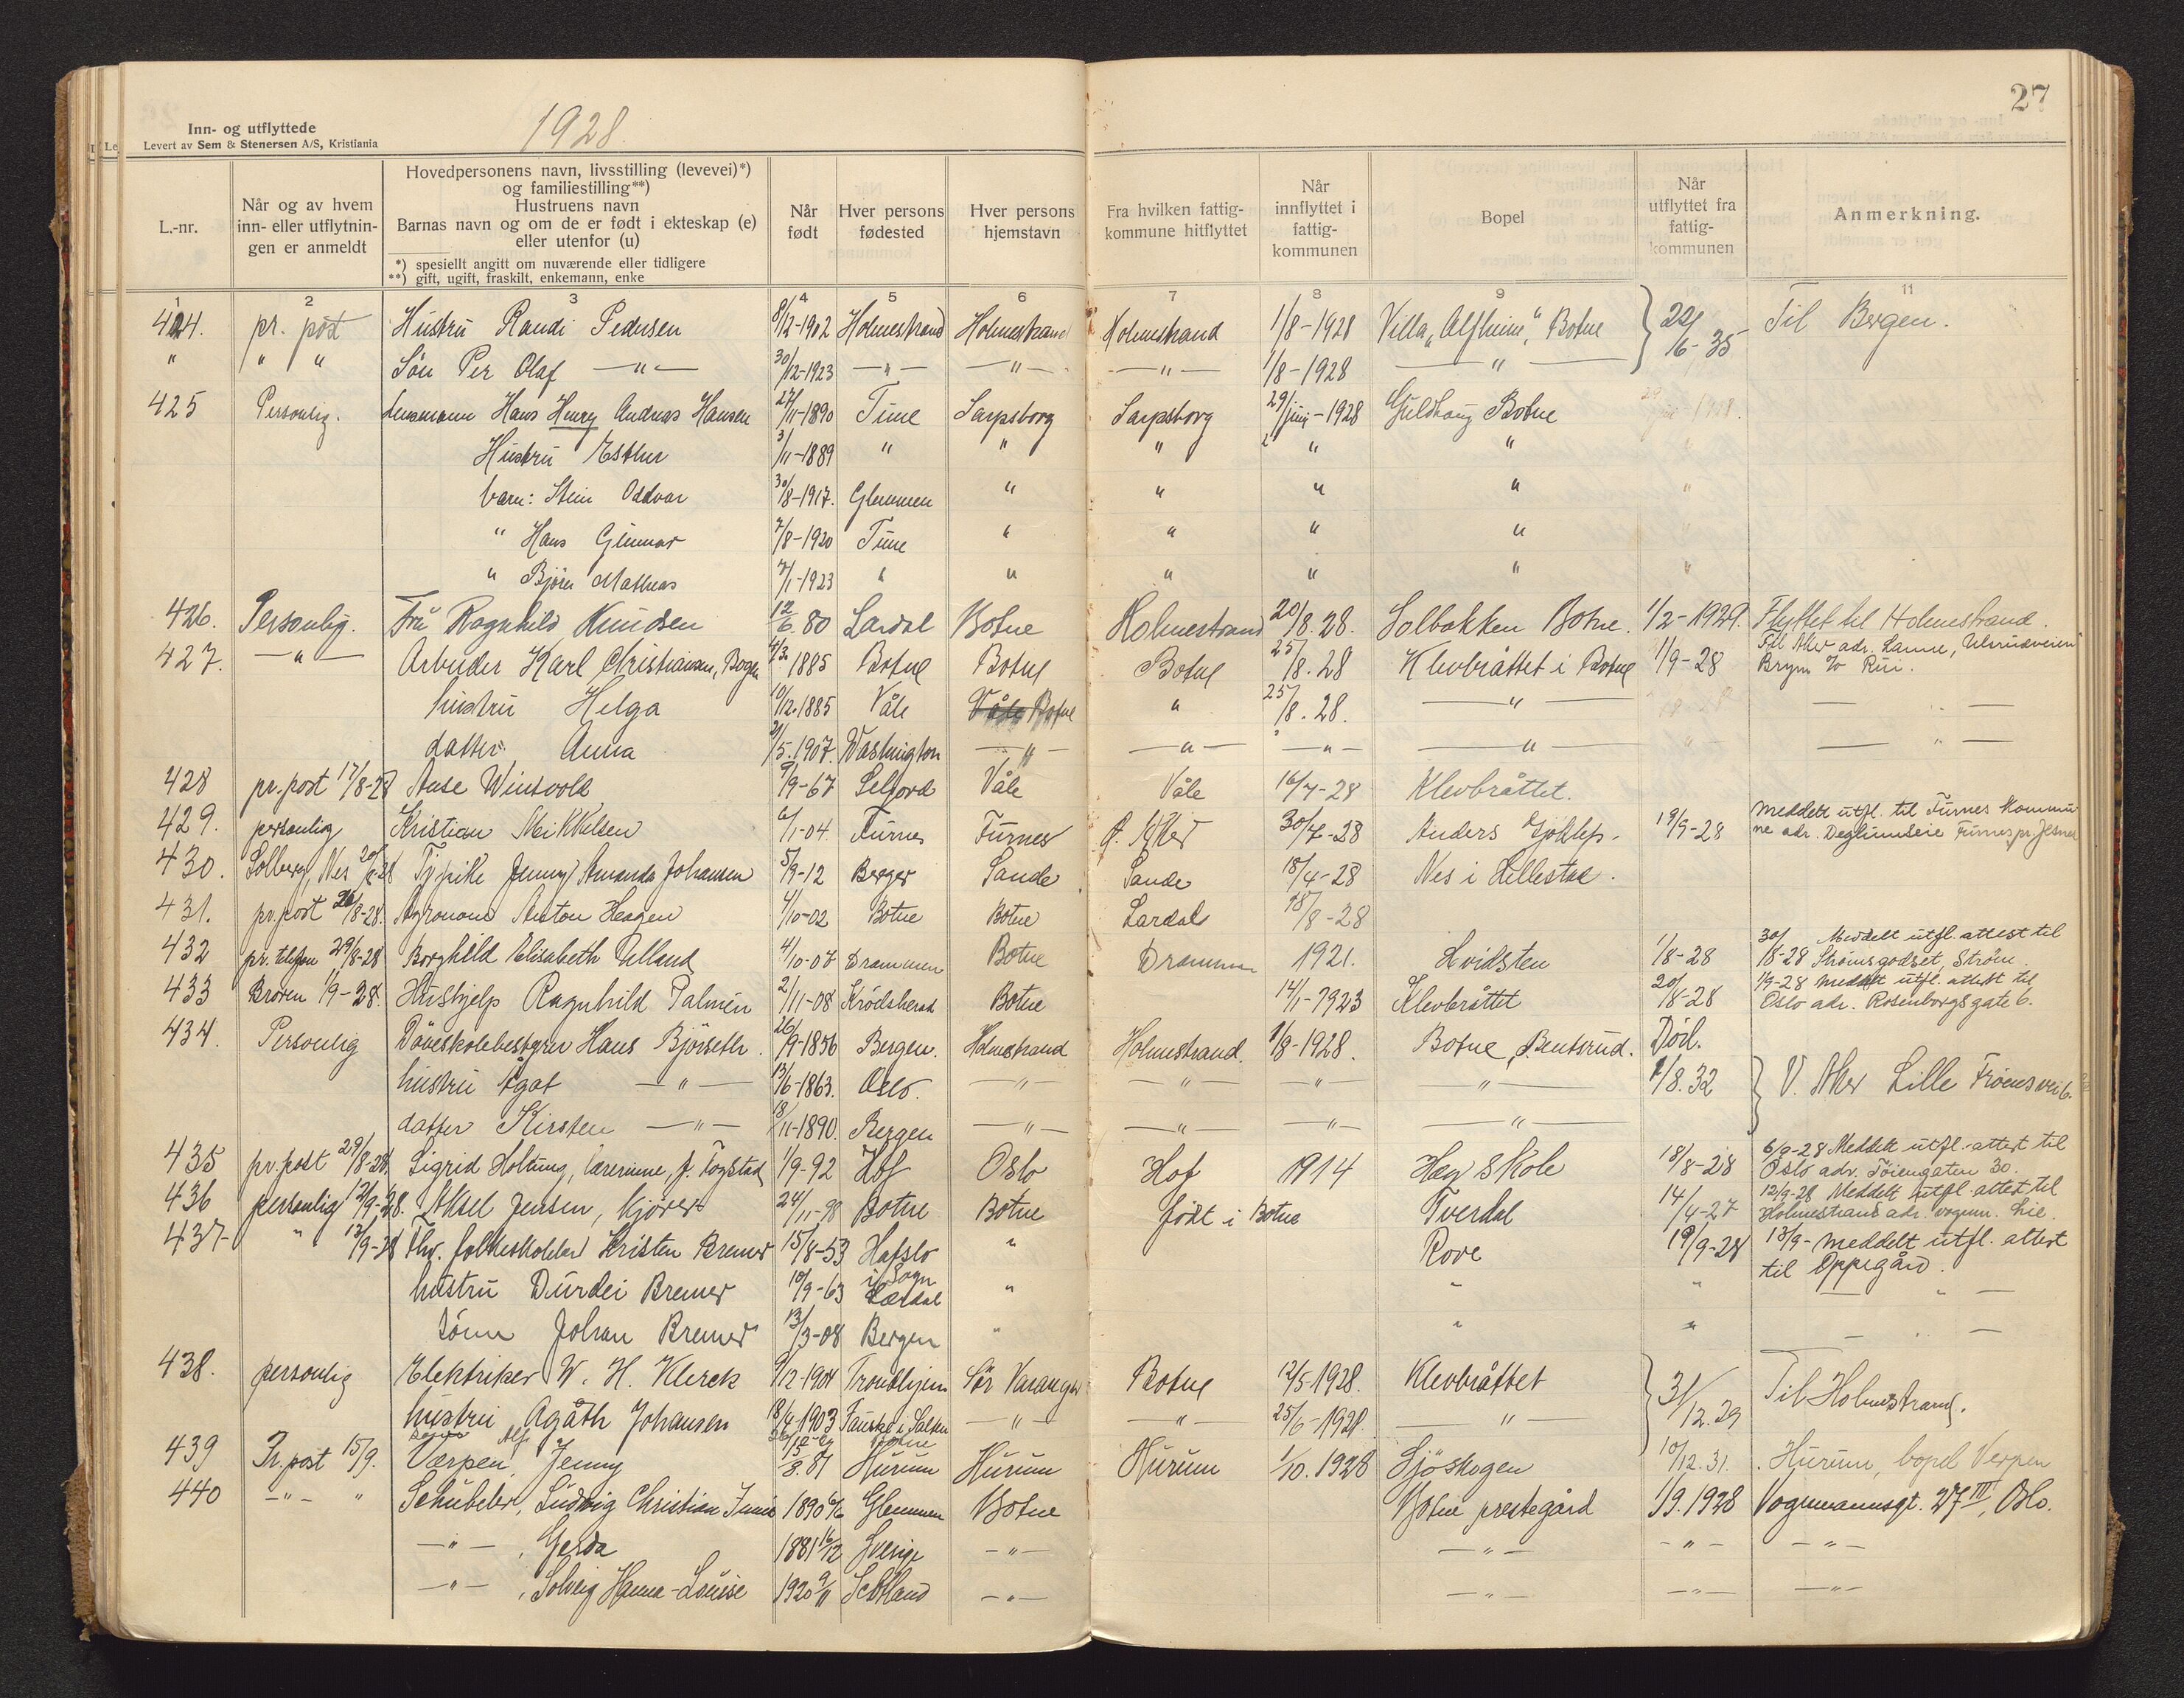 27
Inn- og utflyttede
Levert av Sem & Stenersen A/S, Kristiania
1928.
L.-nr.
Når og av hvem inn- eller utflytnin-gen er anmeldt
Hovedpersonens navn, livsstilling (levevei)*)
og familiestilling**)
Hustruens navn
Barnas navn og om de er født i ekteskap (e)
eller utenfor (u)
*) spesiellt angitt om nuværende eller tidligere
**) gift, ugift, fraskilt, enkemann, enke
Når født
Hver persons fødested
Hver persons hjemstavn
Fra hvilken fattig-kommune hitflyttet
Når innflyttet i fattig-kommunen
Bopel
Når utflyttet fra fattig-kommunen
Anmerkning.
1 2 3 4 5 6 7 8 9 11
424. pr. post Hustru Randi Pedersen 8/12-1902 Holmestrand Holmestrand Holmestrand 1/8-1928 Villa „Alfheim", Botne 22/6-35 Til Bergen.
" " " Søn Per Olaf —"— 30/12-1923 —"— —"— —"— 1/8-1928 —"—
425 Personlig. Lensmann Hans Henry Andreas Hansen 27/11-1890 Tune Sarpsborg Sarpsborg 29/juni-1928 Guldhaug Botne
Hustru Esther 3/11-1889 " " " " "
barn: Stein Oddvar 30/8-1917. Glemmen " " " " "
" Hans Gunnar 7/8-1920 Tune " " " " "
" Bjørn Mathias 7/1-1923 " " " " " "
426. Personlig. Fru Ragnhild Knudsen 12/6.80 Lardal Botne Holmestrand 20/8.28. Solbakken Botne. 1/2-1929. Flyttet til Holmestrand.
427. —"— Arbeider Karl Christiansen, Bogen 4/3 1885 Botne Botne Botne 25/8.28 Klevbråttet i Botne 1/9-28 Til Aker adr. Lanne, Ulsrudveien
Bryn
hustru Helga 10/12.1885 Våle Våle Botne " 25/8.28. —"— — " —
datter Anna 21/5.1907. Washington —"— —"— —"— —"— " — " —
428 pr. post 17/8-28 Anse Winsvold 9/9-67 Seljord Våle Våle 16/7-28 Klevbråttet.
429. personlig Kristian Mikkelsen 6/1-04. Furnes Furnes Ø. Aker 30/7-28 Anders Gjøklep. 19/9-28 Meddelt utfl. til Furnes kommu
ne adr. Deglumseie Furnes pr. Jesnes
430. Solberg, Nes 20/8-28 Tjpike Jenny Amanda Johansen 5/9-12 Berger Sande Sande 18/4-28 Nes i Hillestad.
431. pr. post 26/8-28. Agronom Anton Haagen 4/10-02 Botne Botne Lardal 18/8-28
432 pr. telefon 29/8-28 Borghild Elisabeth Ulland 4/10-07 Drammen Botne Drammen 1921. Hvidsten 1/8-28 30/8-28 Meddelt utfl. attest til
Strømsgodset, Strøm.
433 Broren 1/9-28. Hushjelp Ragnhild Palmén 2/11-08 Krødsherad Botne 14/1-1923 Klevbråttet 20/8-28 1/9-28 Meddelt utfl. attest til
Oslo adr. Rosenborgsgate 6.
434. Personlig Døveskolebestyrer Hans Bjørseth. 26/9-1856 Bergen. Holmestrand Holmestrand. 1/8-1928. Botne, Bentsrud. Død.
hustru Ågot —"— 13/6-1863. Oslo. —"— —"— —"— —"— 1/8.32 V. Aker Lille Frøensvei 6.
datter Kirsten —"— 18/11-1890. Bergen —"— —"— —"— —"—
435 pr. post 29/8-28 Sigrid Holtung, lærerinne, f. Fogstad 1/9-92 Hof Oslo Hof 1914 Haug skole 18/8-28 6/9-28 Meddelt utfl.-attest til
Oslo adr. Tøiengaten 30.
436 personlig 12/9-28. Aksel Jensen, kjører 24/11-98 Botne Botne født i Botne Tverdal 14/4-27 12/9-28 Meddelt utfl. attest til
Holmestrand adr. vognm. Lie.
437 " 13/9-28 Fhv. folkeskolelær Kristen Bremer 15/8-53 Hafslo " Rove 19/9-28 13/9- meddelt utfl. attest
i Sogn til Oppegård.
hustru Durdei Bremer 10/9-63 Lærdal " " " — " —
sønn Johan Bremer 13/3-08 Bergen " " " — " —
438. personlig Elektriker W. H. Klerck 9/12-1904 Trondhjem Sør Varanger Botne 12/5-1928. Klevbråttet 31/12.29 Til Holmestrand.
hustru Agåth Johansen 18/4 1903 Fauske i Salten —"— —"— 25/6-1928. —"—
439 Pr. post 15/9. Værpen, Jenny 5/8.81 Hurum Hurum Hurum 1/10.1928 Sjøskogen 10/12.31. Hurum, bopel Verpen
440 —"— " Schübeler, Ludvig Christian Junio 1890 Glemmen Botne Botne prestegård 1/9.1928 Vogmannsgt. 27 III, Oslo.
—"—, Gerda 1881 16/12 Sverige —"— —"— —"— —"—
—"—, Solveig Hanna-Louise 1920 9/11 —"— —"— —"— —"—